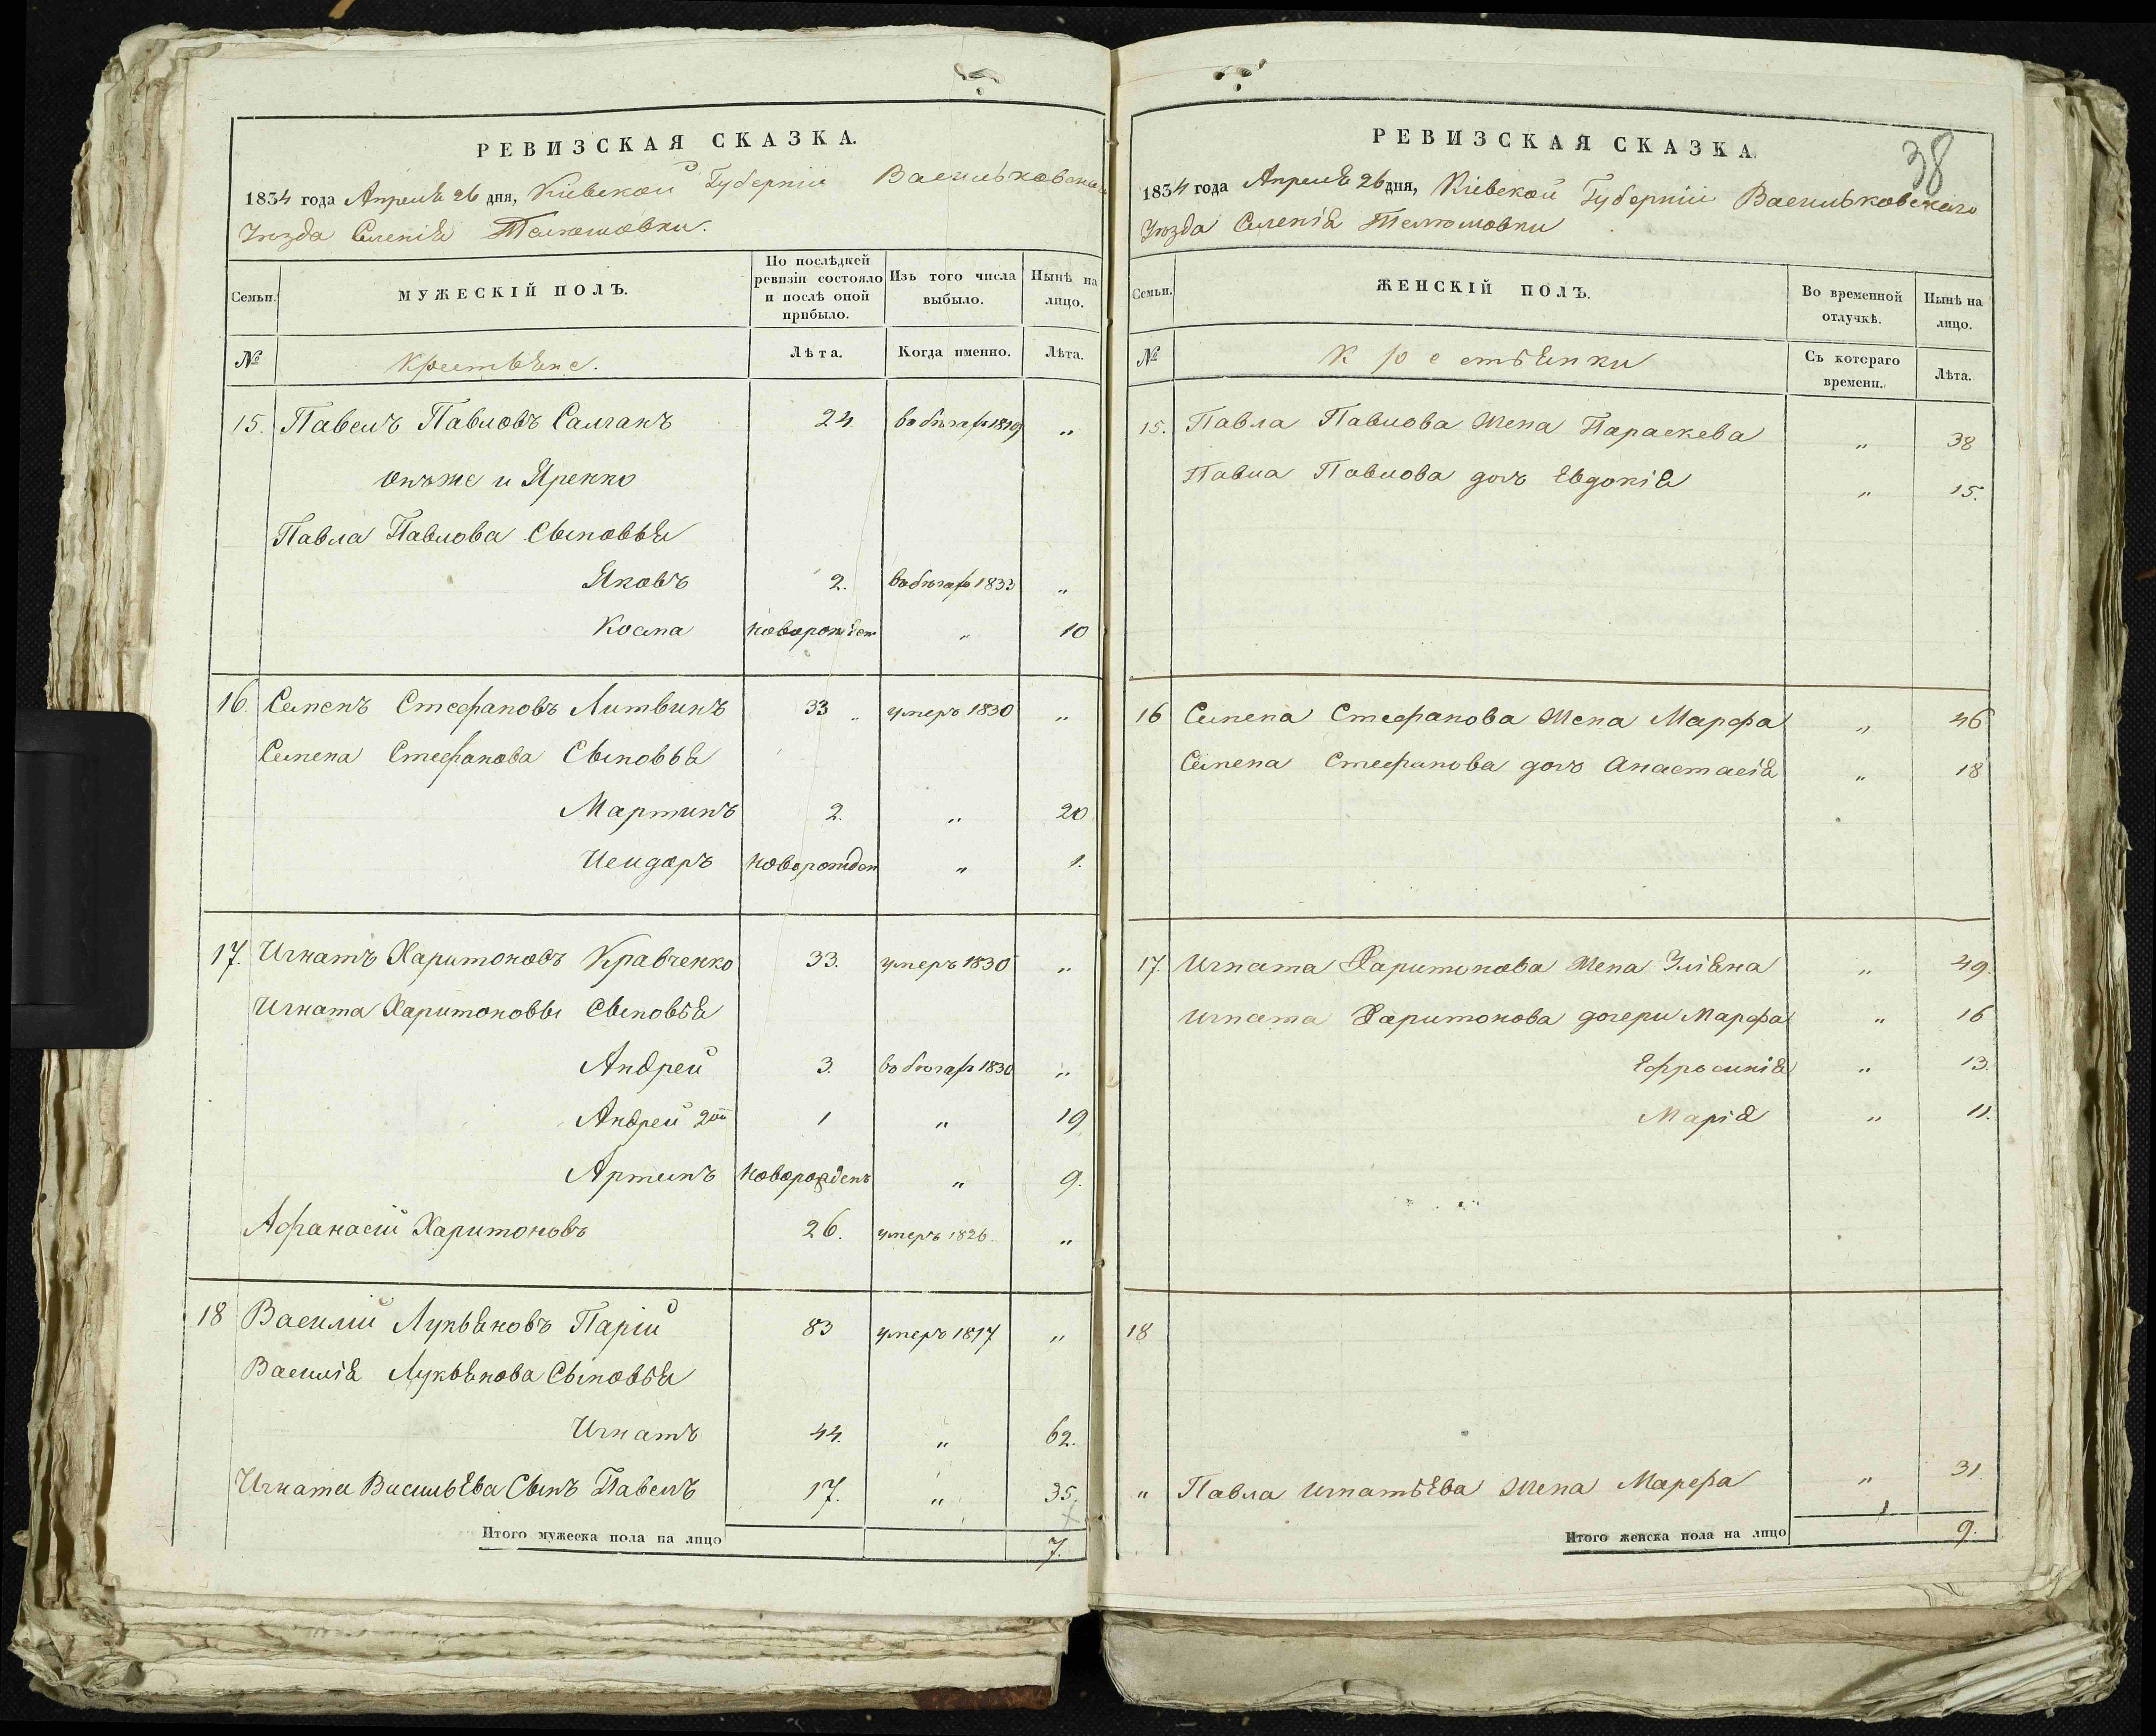 РЕВИЗСКАЯ СКАЗКА.
1834 года Апреля 26 дня, Кіевской Губерніи Васильковскаго
Уѣзда Селенія
Семьи. МУЖЕСКІЙ ПОЛЪ. По послѣдней ревизіи состояло и послѣ оной прибыло. Изъ того числа выбыло. Нынѣ на лицо.
№ Крестьяне. Лѣта. Когда именно. Лѣта.
15. Павелъ Павловъ Салганъ 24 въ бѣгах 1829 „
онъже и Яренко
Павла Павлова Сыновья
Яковъ 2. въ бѣгах 1833 „
Косма новорожден „ 10
16. Семенъ Стефановъ Литвинъ 33 „ умеръ 1830 „
Семена Стефанова Сыновья
Мартинъ 2. „ 20
Исидоръ новорожден „ 1.
17. Игнатъ Харитоновъ Кравченко 33. умеръ 1830 „
Игната Харитоновы Сыновья
Андрей 3. въ бѣгах 1830 „
Андрей 2ой 1 „ 19
Артемъ новорожденъ „ 9.
Афанасій Харитоновъ 26. умеръ 1826 „
18 Василій Лукьяновъ Парій 83 умеръ 1817 „
Василія Лукьянова Сыновья
Игнатъ 44. „ 62.
Игната Васильева Сынъ Павелъ 17. „ 35.
Итого мужеска пола на лицо 7.
РЕВИЗСКАЯ СКАЗКА.
38
1834 года Апреля 26 дня, Кіевской Губерніи Васильковскаго
Уѣзда Селенія
Семьи. ЖЕНСКІЙ ПОЛЪ. Во временной отлучкѣ. Нынѣ на лицо.
№ Крестьянки Съ котораго времени. Лѣта.
15. Павла Павлова жена Параскева „ 38
Павла Павлова дочь Евдокія „ 15.
16 Семена Стефанова жена Марфа „ 46
Семена Стефанова дочь Анастасія „ 18
17. Игната Харитонова жена Уліяна „ 49.
Игната Харитонова дочери Марфа „ 16
Ефросинія „ 13.
Марія „ 11.
18
„ Павла Игнатьева жена Марфа „ 31.
Итого женска пола на лицо 9.